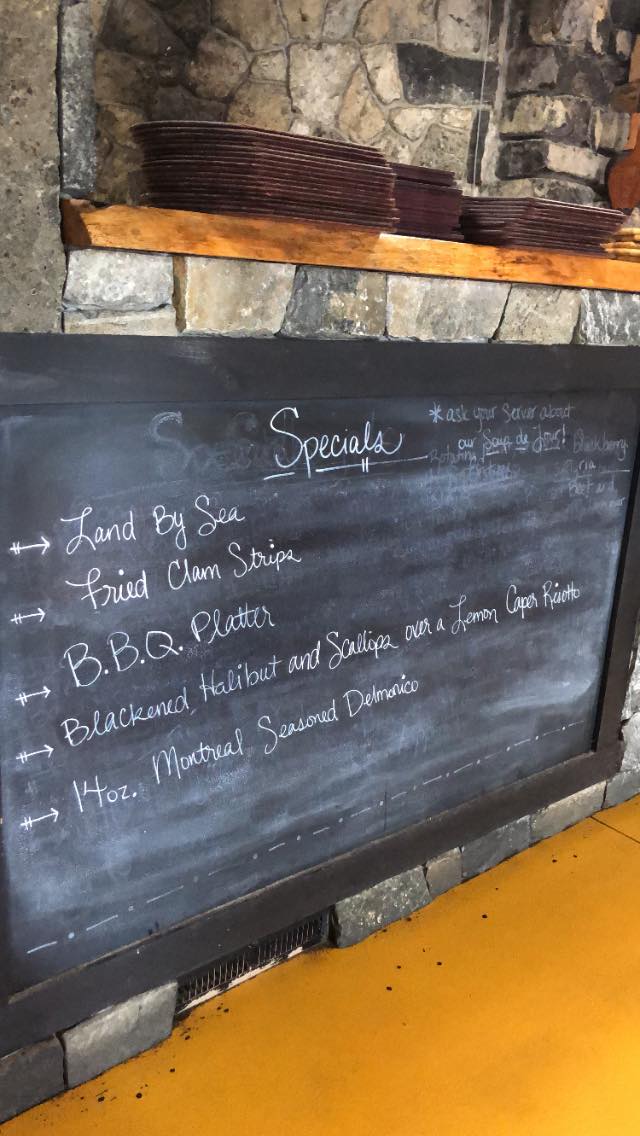 Specials
* ask your server about
our Soup de Jour!
Land By Sea
Fried Clam Strips
B.B.Q. Platter
Blackened Halibut and Scallops over a Lemon Caper Risotto
14oz. Montreal Seasoned Delmonico